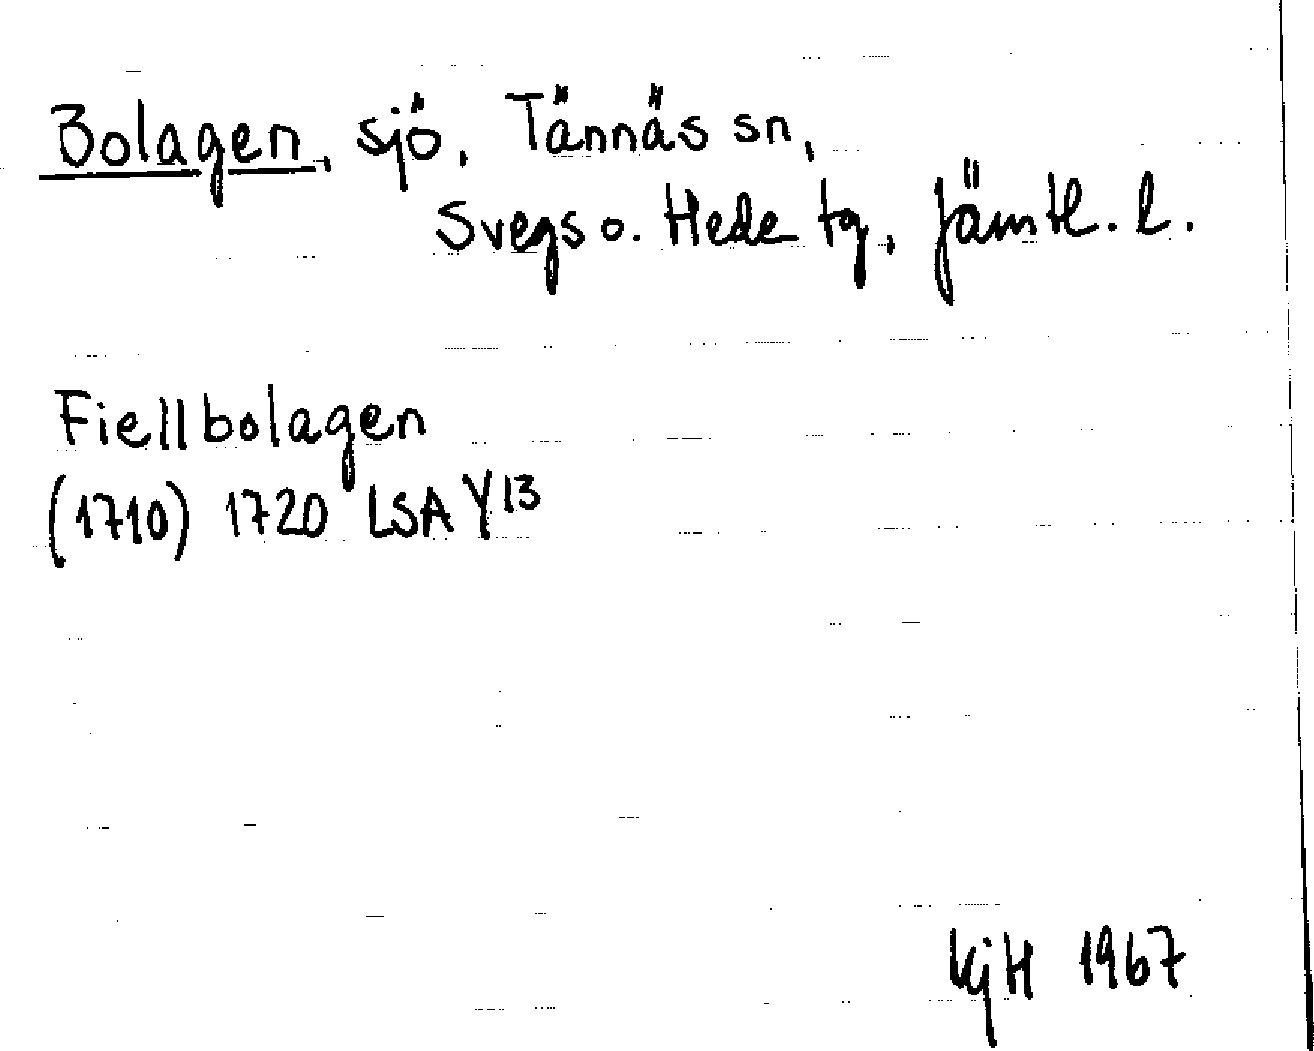 Bolagen, sjö, Tännäs sn,
Svegs o. Hede tg, Jämtl. l.
Fiellbolagen
(1710) 1720 LSA Y13
KjH 1967